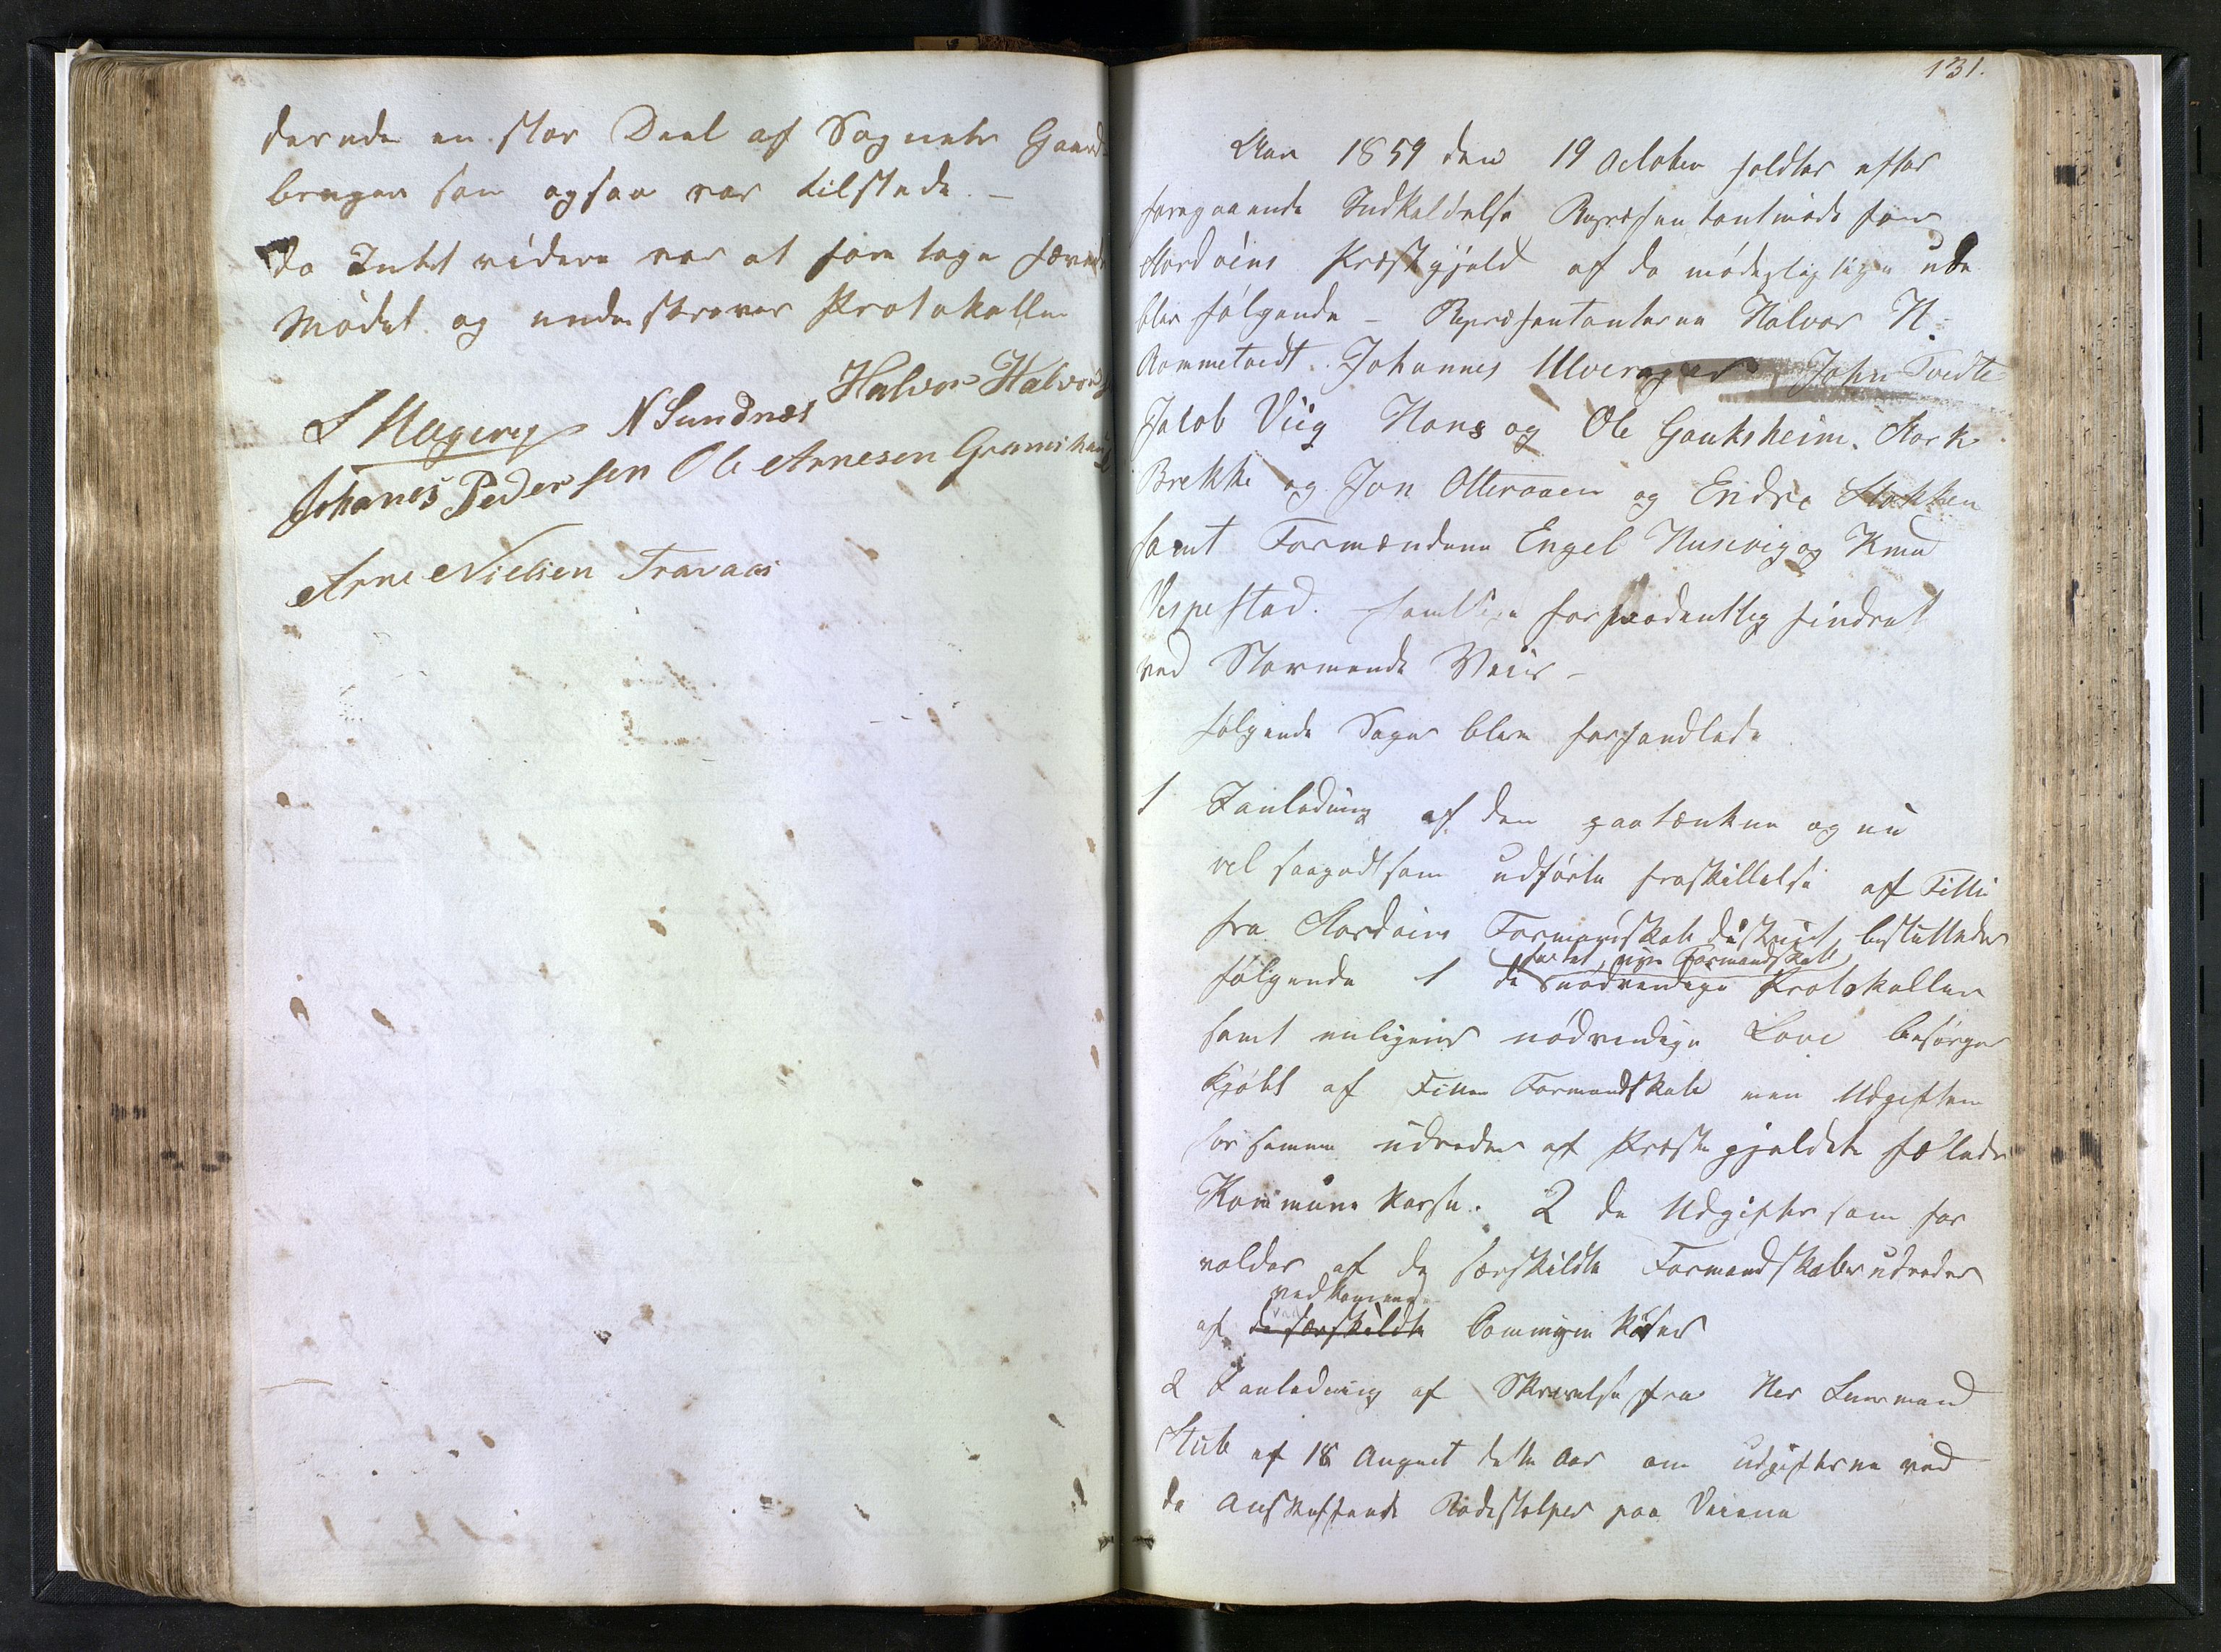 desuden en stor Deel af Sognets Gaard
brugere som ogsaa var tilstede. –
Da Intet videre var at foretage hæved
Mødet og underskrever Protokollen
Halvor Halvors
S Hageng N Sundnæs
Johanes Pedersen Ole Arnesen Grønnehaug
Arne Nielsen Travaas
131.
Aar 1859 den 19 October holdtes efter
foregaaende Indkaldelse Repræsentantmøde for
Stordøens Præstegjæld af de mødepligtige ude
blev følgende – Repræsentanterne Halvor H
Rommetvedt. Johannes Ulverager John Tvedte
Jakob Viig Hans og Ole Gouksheim. Stork
Brekke og Jon Otteraaen og Endre Stokken
samt Formændene Engel Husevig og Knud
Vespestad. samtlige formodentlig hindret
ved Stormende Veir –
følgende Sager blev forhandlede
1 I anledning af den paatænkte og nu
vel saagodtsom udførte fraskillelse af Fitie
fra Stordøens Formandskabsdistrict, besluttedes
for det nye Formandskab
følgende 1 de nødvendige Protokoller
samt enligene nødvendige Love besørges
kjøbt af Fitie Formandskab men Udgiften
for samme udredes af Præstegjeldets fælleds
Kommune kasse. 2 de Udgifter som for
voldes af de særskildte Formandskaber udredes
vedkommende
af de særskildte Commune kasser
2 I anledning af Skrivelse fra Her Lensmand
Stub af 18 August dette Aar om udgifterne ved
de Anskaffende Rodestolper paa Veiene